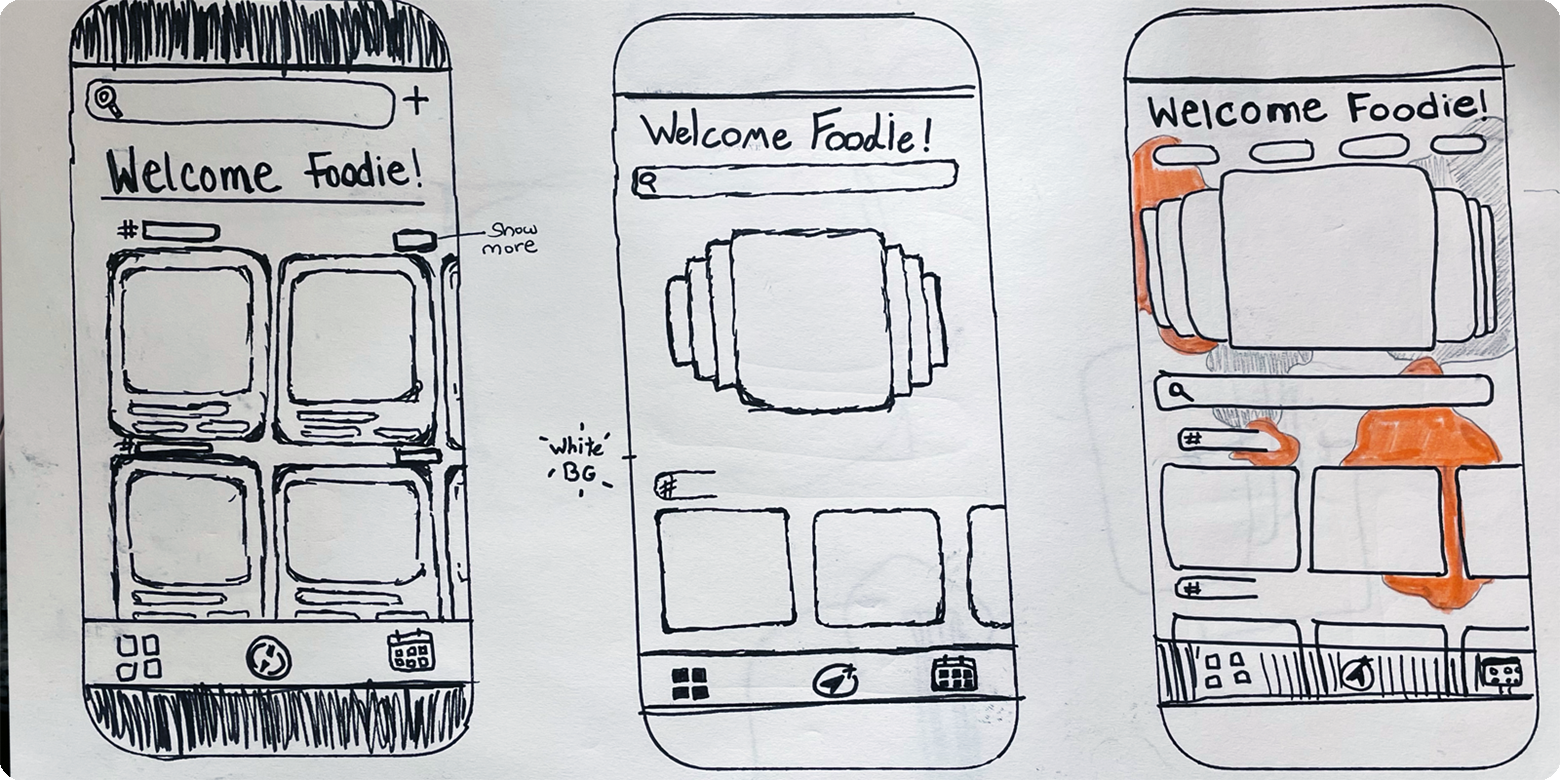 Welcome Foodie!
#
Show
more
#
Welcome Foodie!
White
BG
#
Welcome Foodie!
#
#